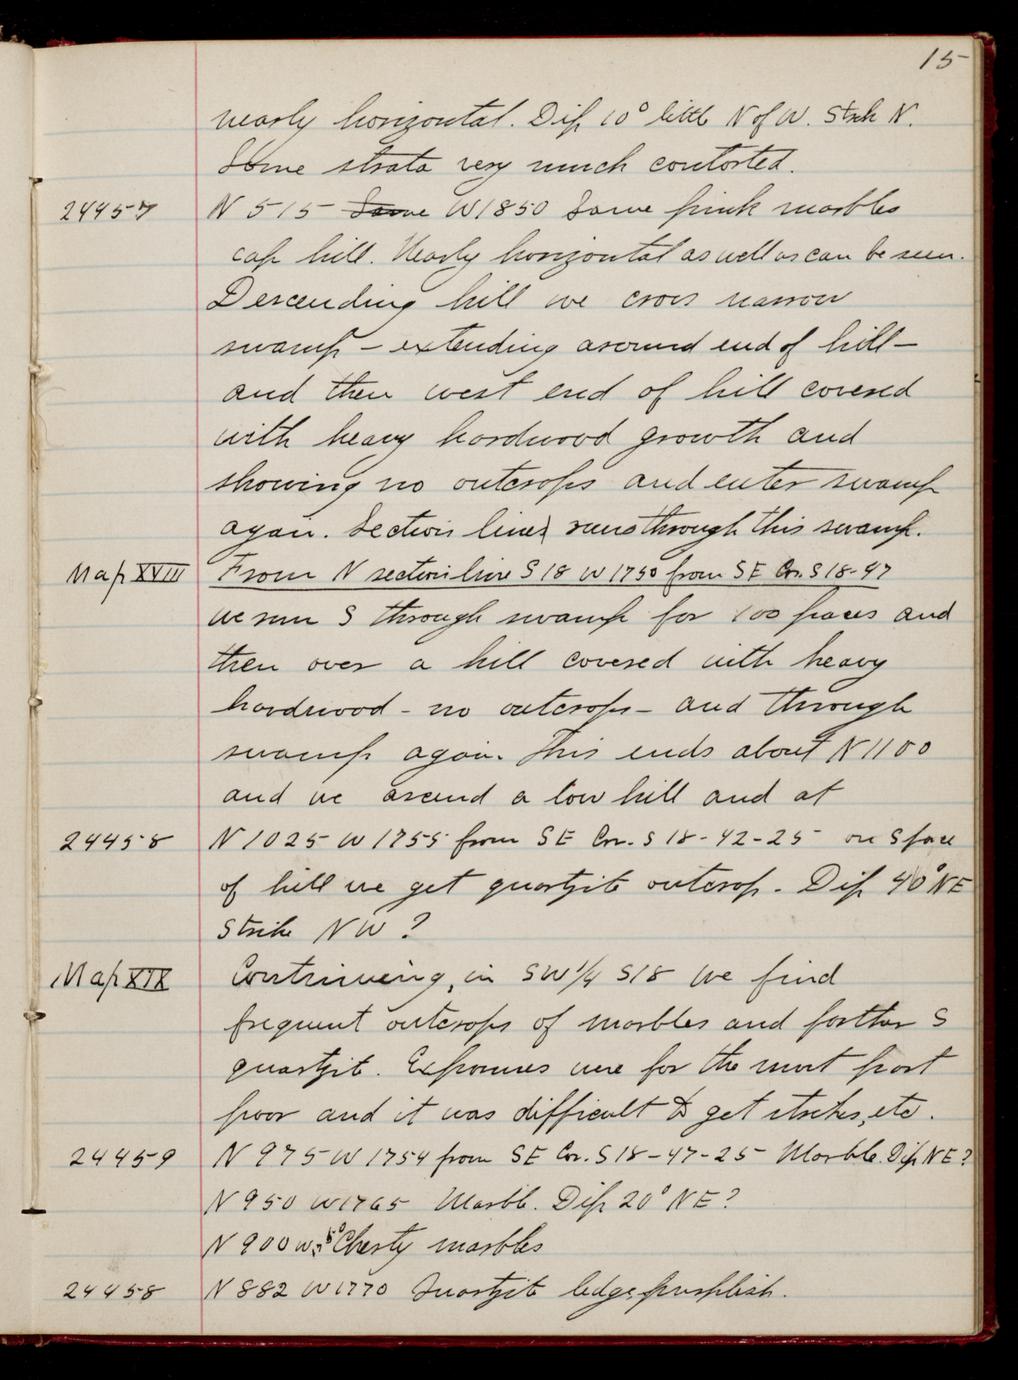 15
nearly horizontal. Dip 10° little N of W. Strike N.
Some strata very much contorted.
24457 N 515 Same W1850 Same pink marbles
cap hill. Nearly horizontal as well as can be seen.
Descending hill we cross narrow
swamp – extending around end of hill –
and then west end of hill covered
with heavy hardwood growth and
showing no outcrops and enter swamp
again. Section line runs through this swamp.
Map XVIII From N section line S 18 W 1750 from SE Cor. S 18-47
we run S through swamp for 100 paces and
then over a hill covered with heavy
hardwood – no outcrops – and through
swamp again. This ends about N 1100
and we ascend a low hill and at
24458 N 1025 W 1755 from SE Cor. S 18-42-25 on S face
of hill we get quartzit outcrop. Dip 40° NE
Strike NW ?
Map XIX Continuing, in SW 1/4 S18 we find
frequent outcrops of marbles and farther S
quartzit. Exposures were for the most part
poor and it was difficult to get strikes, etc.
24459 N 975 W 1754 from SE Cor. S 18-47-25 Marble. Dip NE ?
N 950 W1765 Marbl. Dip 20° NE ?
N 900 W Cherty marbles
24458 N 882 W 1770 Quartzit ledge purplish.